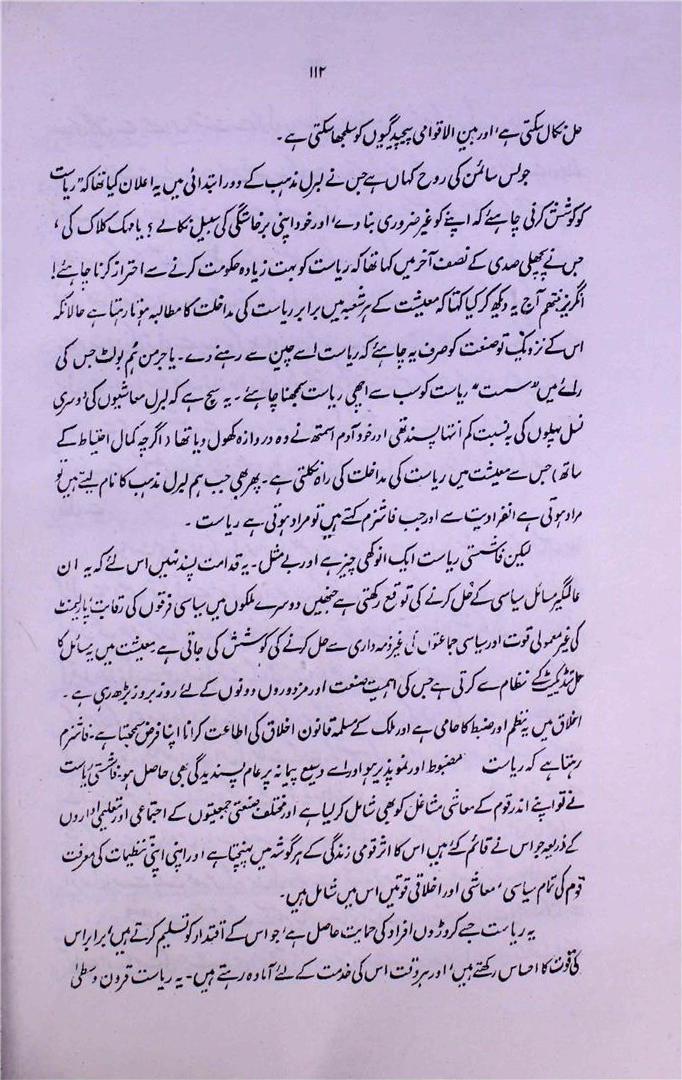 ۱۱۲
حل نکال سکتی ہے، اور بین الاقوامی پیچیدگیوں کو سلجھا سکتی ہے۔
جولس سائن کی روح کہاں ہے جس نے لبرل مذہب کے دور ابتدائی میں یہ اعلان کیا تھا کہ "ریاست
کو کوشش کرنی چاہئے کہ اپنے کو غیر ضروری بنا دے، اور خود اپنی برخاستگی کی سبیل نکالے؟ یا مہک کلاک کی،
جس نے پچھلی صدی کے نصف آخر میں کہا تھا کہ ریاست کو بہت زیادہ حکومت کرنے سے احتراز کرنا چاہئے!
انگریز بنتھم آج یہ دیکھ کر کیا کہتا کہ معیشت کے ہر شعبہ میں برابر ریاست کی مداخلت کا مطالبہ ہوتا رہتا ہے حالانکہ
اس کے نزدیک تو صنعت کو صرف یہ چاہئے کہ ریاست اسے چین سے رہنے دے۔ یا جرمن ہم بولٹ جس کی
رائے میں "سست" ریاست کو سب سے اچھی ریاست سمجھنا چاہئے۔ یہ سچ ہے کہ لبرل معاشیوں کی دوسری
نسل پہلوں کی بہ نسبت کم انتہا پسند تھی اور خود آدم اسمتھ نے وہ دروازہ کھول دیا تھا (اگرچہ کمال احتیاط کے
ساتھ) جس سے معیشت میں ریاست کی مداخلت کی راہ نکلتی ہے۔ پھر بھی جب ہم لبرل مذہب کا نام لیتے ہیں تو
مراد ہوتی ہے انفرادیت سے اور جب فاشزم کہتے ہیں تو مراد ہوتی ہے ریاست ۔
لیکن فاشستی ریاست ایک انوکھی چیز ہے اور بے مثل۔ یہ قدامت پسند نہیں اس لئے کہ یہ ان
عالمگیر مسائل سیاسی کے حل کرنے کی توقع رکھتی ہے جنھیں دوسرے ملکوں میں سیاسی فرقوں کی رقابت، پارلیمنٹ
کی غیر معمولی قوت اور سیاسی جماعتوں کی غیر ذمہ داری سے حل کرنے کی کوشش کی جاتی ہے معیشت میں یہ مسائل کا
حل سنڈیکیٹ کے نظام سے کرتی ہے جس کی اہمیت صنعت اور مزدوروں دونوں کے لئے روز بروز بڑھ رہی ہے ۔
اخلاق میں یہ نظم اور ضبط کا حامی ہے اور ملک کے مسلمہ قانون اخلاق کی اطاعت کرانا اپنا فرض سمجھتا ہے۔ فاشزم
رہتا ہے کہ ریاست مضبوط اور نمو پذیر ہو اور اسے وسیع پیمانہ پر عام پسندیدگی بھی حاصل ہو۔ فاشستی ریاست
نے تو اپنے اندر قوم کے معاشی مشاغل کو بھی شامل کر لیا ہے اور مختلف صنعتی جمعیتوں کے اجتماعی اور تعلیمی اداروں
کے ذریعہ جو اس نے قائم کئے ہیں اس کا اثر قومی زندگی کے ہر گوشہ میں پہنچتا ہے اور اپنی اپنی تنظیمات کی معرفت
قوم کی تمام سیاسی، معاشی اور اخلاقی قوتیں اس میں شامل ہیں۔
یہ ریاست جسے کروڑوں افراد کی حمایت حاصل ہے، جو اس کے اقتدار کو تسلیم کرتے ہیں، برابر اس
کی قوت کا احساس رکھتے ہیں، اور ہر وقت اس کی خدمت کے لئے آمادہ رہتے ہیں۔ یہ ریاست قرون وسطیٰ